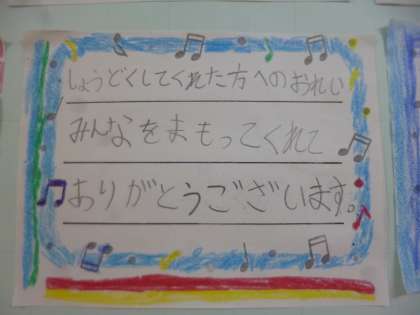 しょうどくしてくれた方へのおれい
みんなをまもってくれて
ありがとうございます。